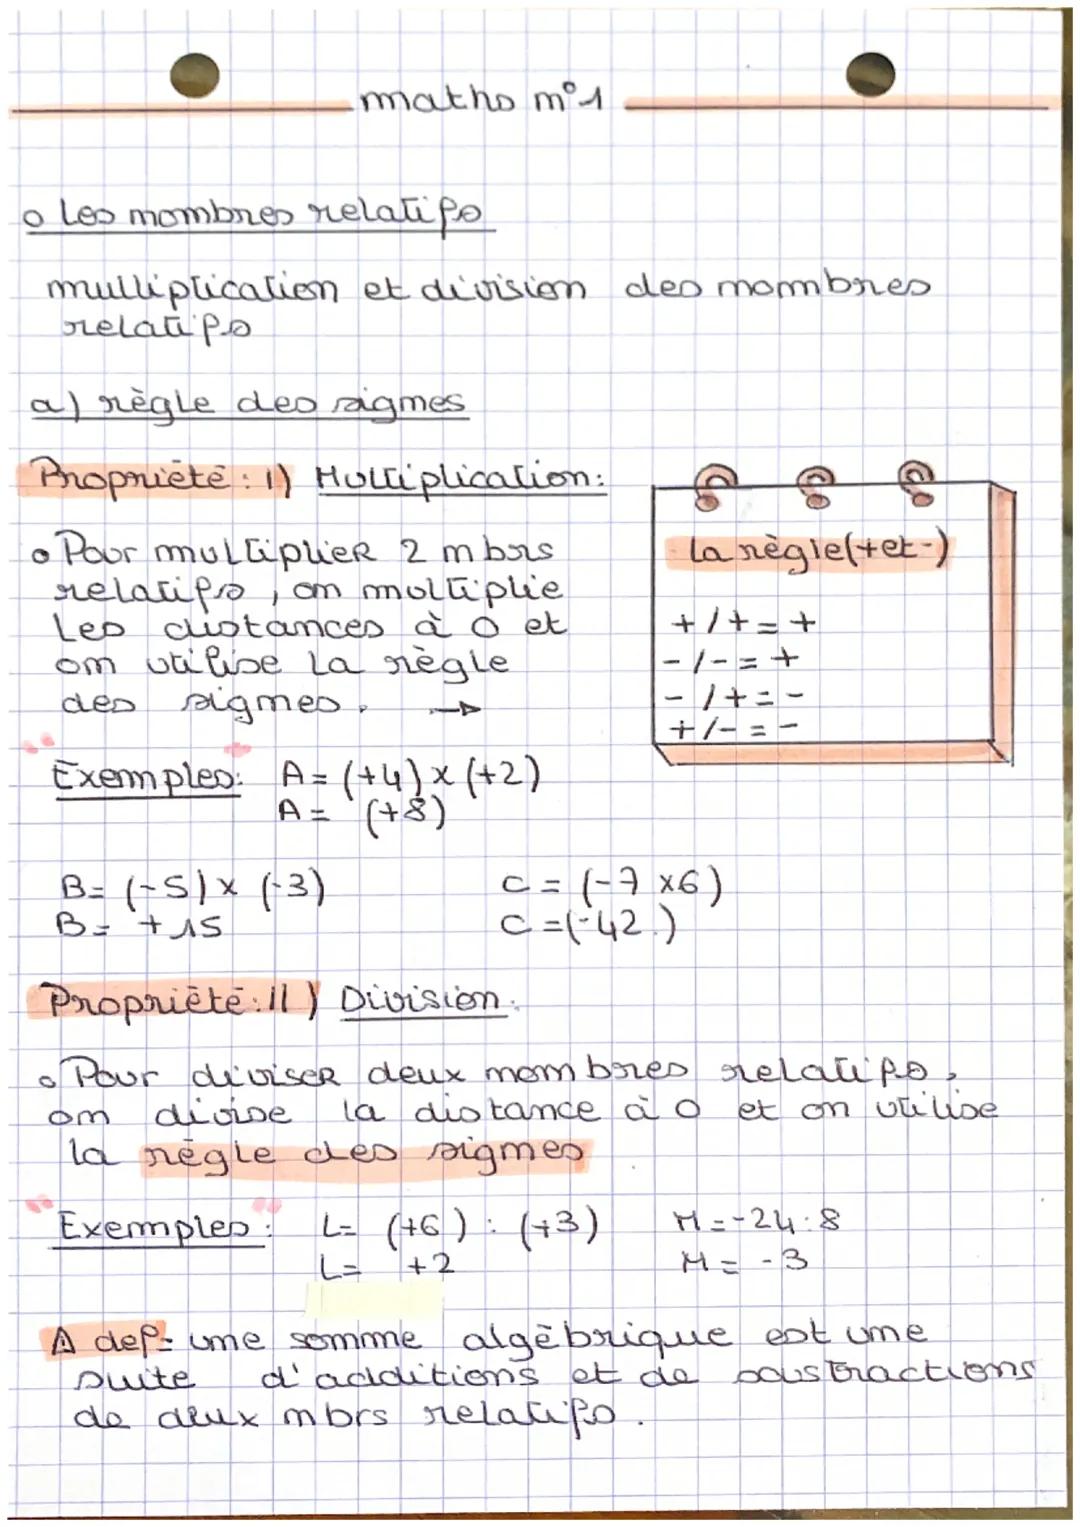 maths n°1
o Les nombres relatifs
multiplication et division des nombres
relatifs
a) règle des signes
Propriété : I) Multiplication:
o Pour multiplier 2 nbrs
relatifs, on multiplie
Les distances à 0 et
on utilise la règle
des signes. →
La règle (+ et -)
+ / + = +
- / - = +
- / + = -
+ / - = -
Exemples: A = (+4) x (+2)
A = (+8)
B = (-5) x (-3)
B = +15
C = (-7 x6)
C = (-42.)
Propriété: II) Division:
o Pour diviser deux nombres relatifs,
on divise la distance à 0 et on utilise
la règle des signes
Exemples: L = (+6) : (+3)
L = +2
M = -24 : 8
M = -3
A def- une somme algébrique est une
suite d'additions et de soustractions
de deux nbrs relatifs.